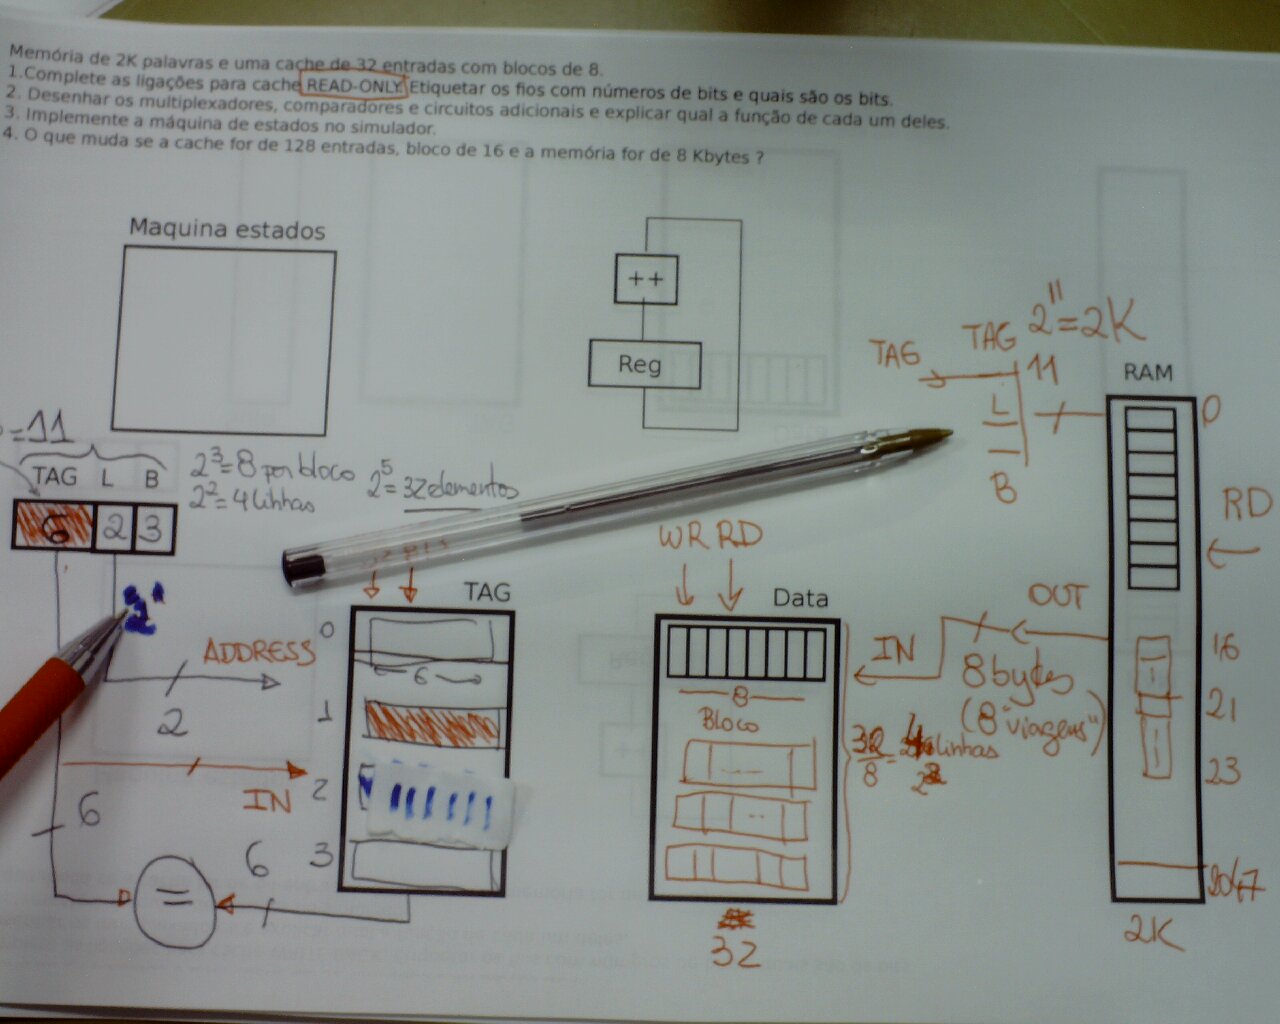 Memória de 2K palavras e uma cache de 32 entradas com blocos de 8.
1.Complete as ligações para cache READ-ONLY. Etiquetar os fios com números de bits e quais são os bits.
2. Desenhar os multiplexadores, comparadores e circuitos adicionais e explicar qual a função de cada um deles.
3. Implemente a máquina de estados no simulador.
4. O que muda se a cache for de 128 entradas, bloco de 16 e a memória for de 8 Kbytes ?
Maquina estados
++
Reg
TAG
TAG 2^11=2K
11
L
B
RAM
0
RD
=11
TAG L B
6 2 3
2^3=8 por bloco
2^2=4 linhas
2^5=32 elementos
WR RD
TAG
Data
OUT
ADDRESS
2
IN
6
6
=
0
6
1
2
3
8
Bloco
IN
8 bytes
(8 "viagens")
32/8 = linhas
32
16
21
23
2047
2K